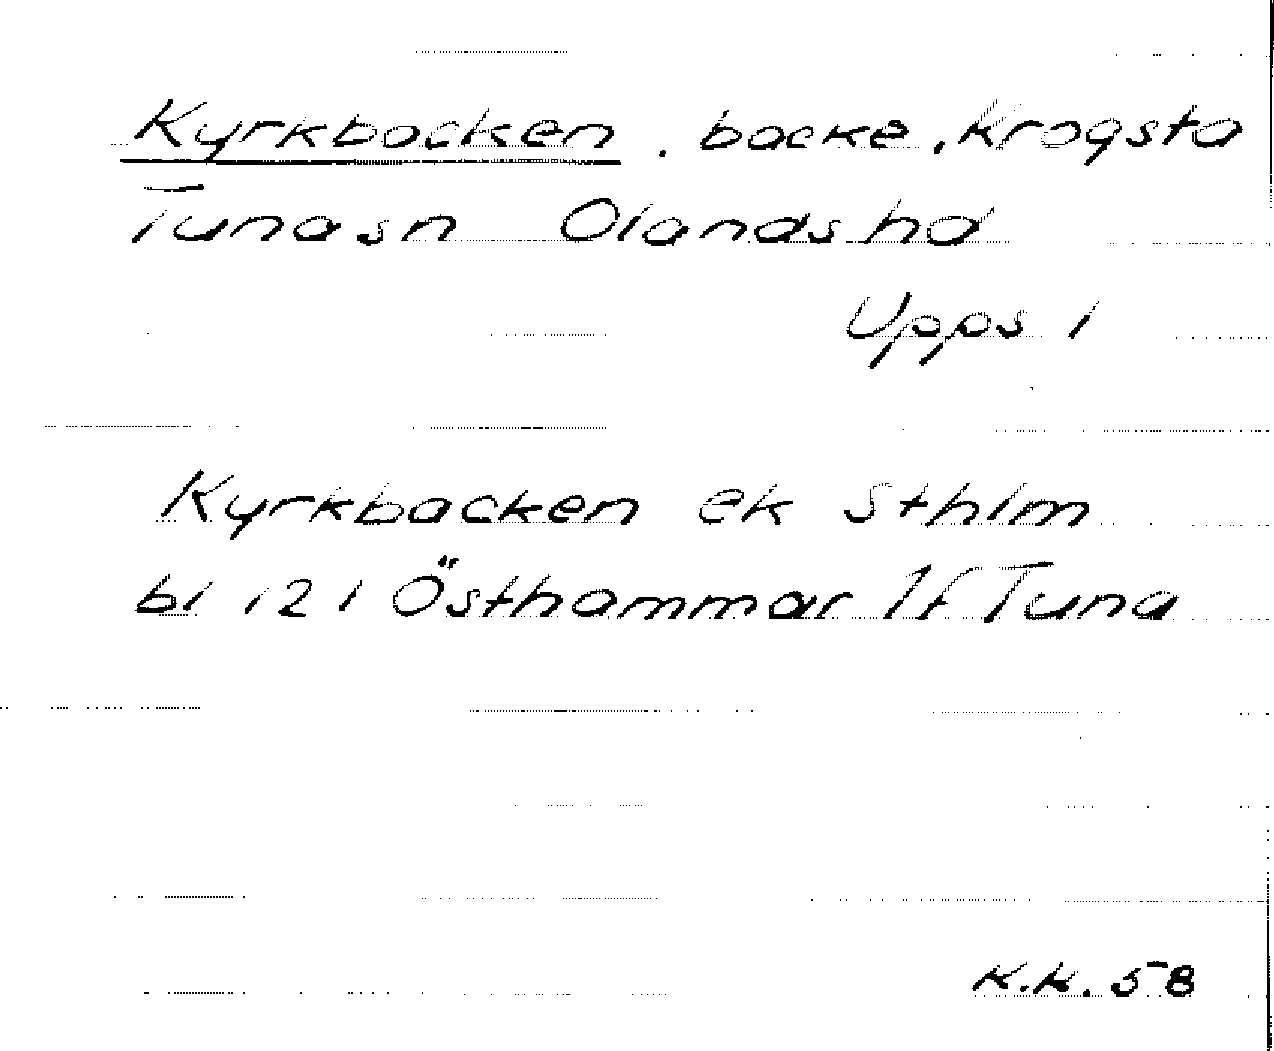 Kyrkbacken. backe, Krogsta
Tuna sn Olands hd
Upps l
Kyrkbacken ek Sthlm
bl 121 Östhammar 1f Tuna
K.K. 58